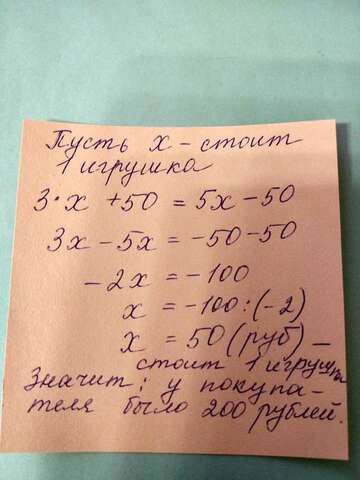 Пусть х - стоит
1 игрушка
3·х +50 = 5х-50
3х - 5х = -50-50
-2х = -100
х = -100:(-2)
х = 50 (руб) -
стоит 1 игрушка
Значит: у покупа-
теля было 200 рублей.